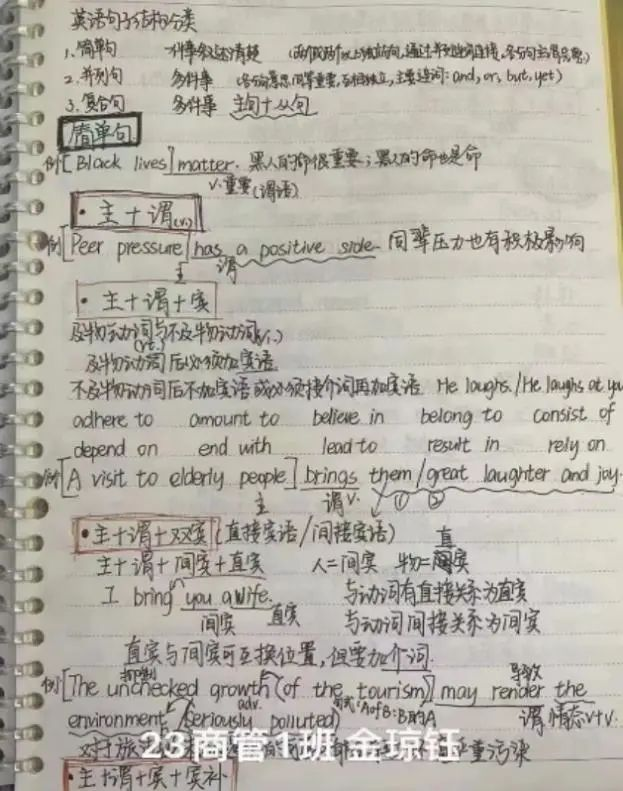 英语句子结构分类
1.简单句 一件事叙述清楚 (两个或两个以上独立的句,通过并列连词连接,各分句主谓完整)
2.并列句 多件事 (各句意思同等重要,互相独立,主要连词:and,or,but,yet)
3.复合句 多件事 主句+从句
简单句
例[Black lives] matter. 黑人的命很重要;黑人的命也是命
v.重要(谓语)
·主+谓(vi.)
例[Peer pressure] has a positive side. 同辈压力也有积极影响
主 谓
·主+谓+宾
及物动词与不及物动词(vi.)
(vt.)
及物动词后必须加宾语
不及物动词后不加宾语或必须接介词再加宾语 He laughs./He laughs at you
adhere to amount to believe in belong to consist of
depend on end with lead to result in rely on
例[A visit to elderly people] brings them/great laughter and joy.
主 谓v. ① ②
·主+谓+双宾(直接宾语/间接宾语) 直
主+谓+间宾+直宾 人=间宾 物=宾
I bring you a wife. 与动词有直接关系为直宾
间宾 直宾 与动词间接关系为间宾
直宾与间宾可互换位置,但要加介词.
抑制 导致
例[The unchecked growth (of the tourism)] may render the
adv. A of B:B的A
environment/(seriously polluted) 谓 情态v+v.
对于旅 重污染
23商管1班 金琼钰
·主+谓+宾+宾补